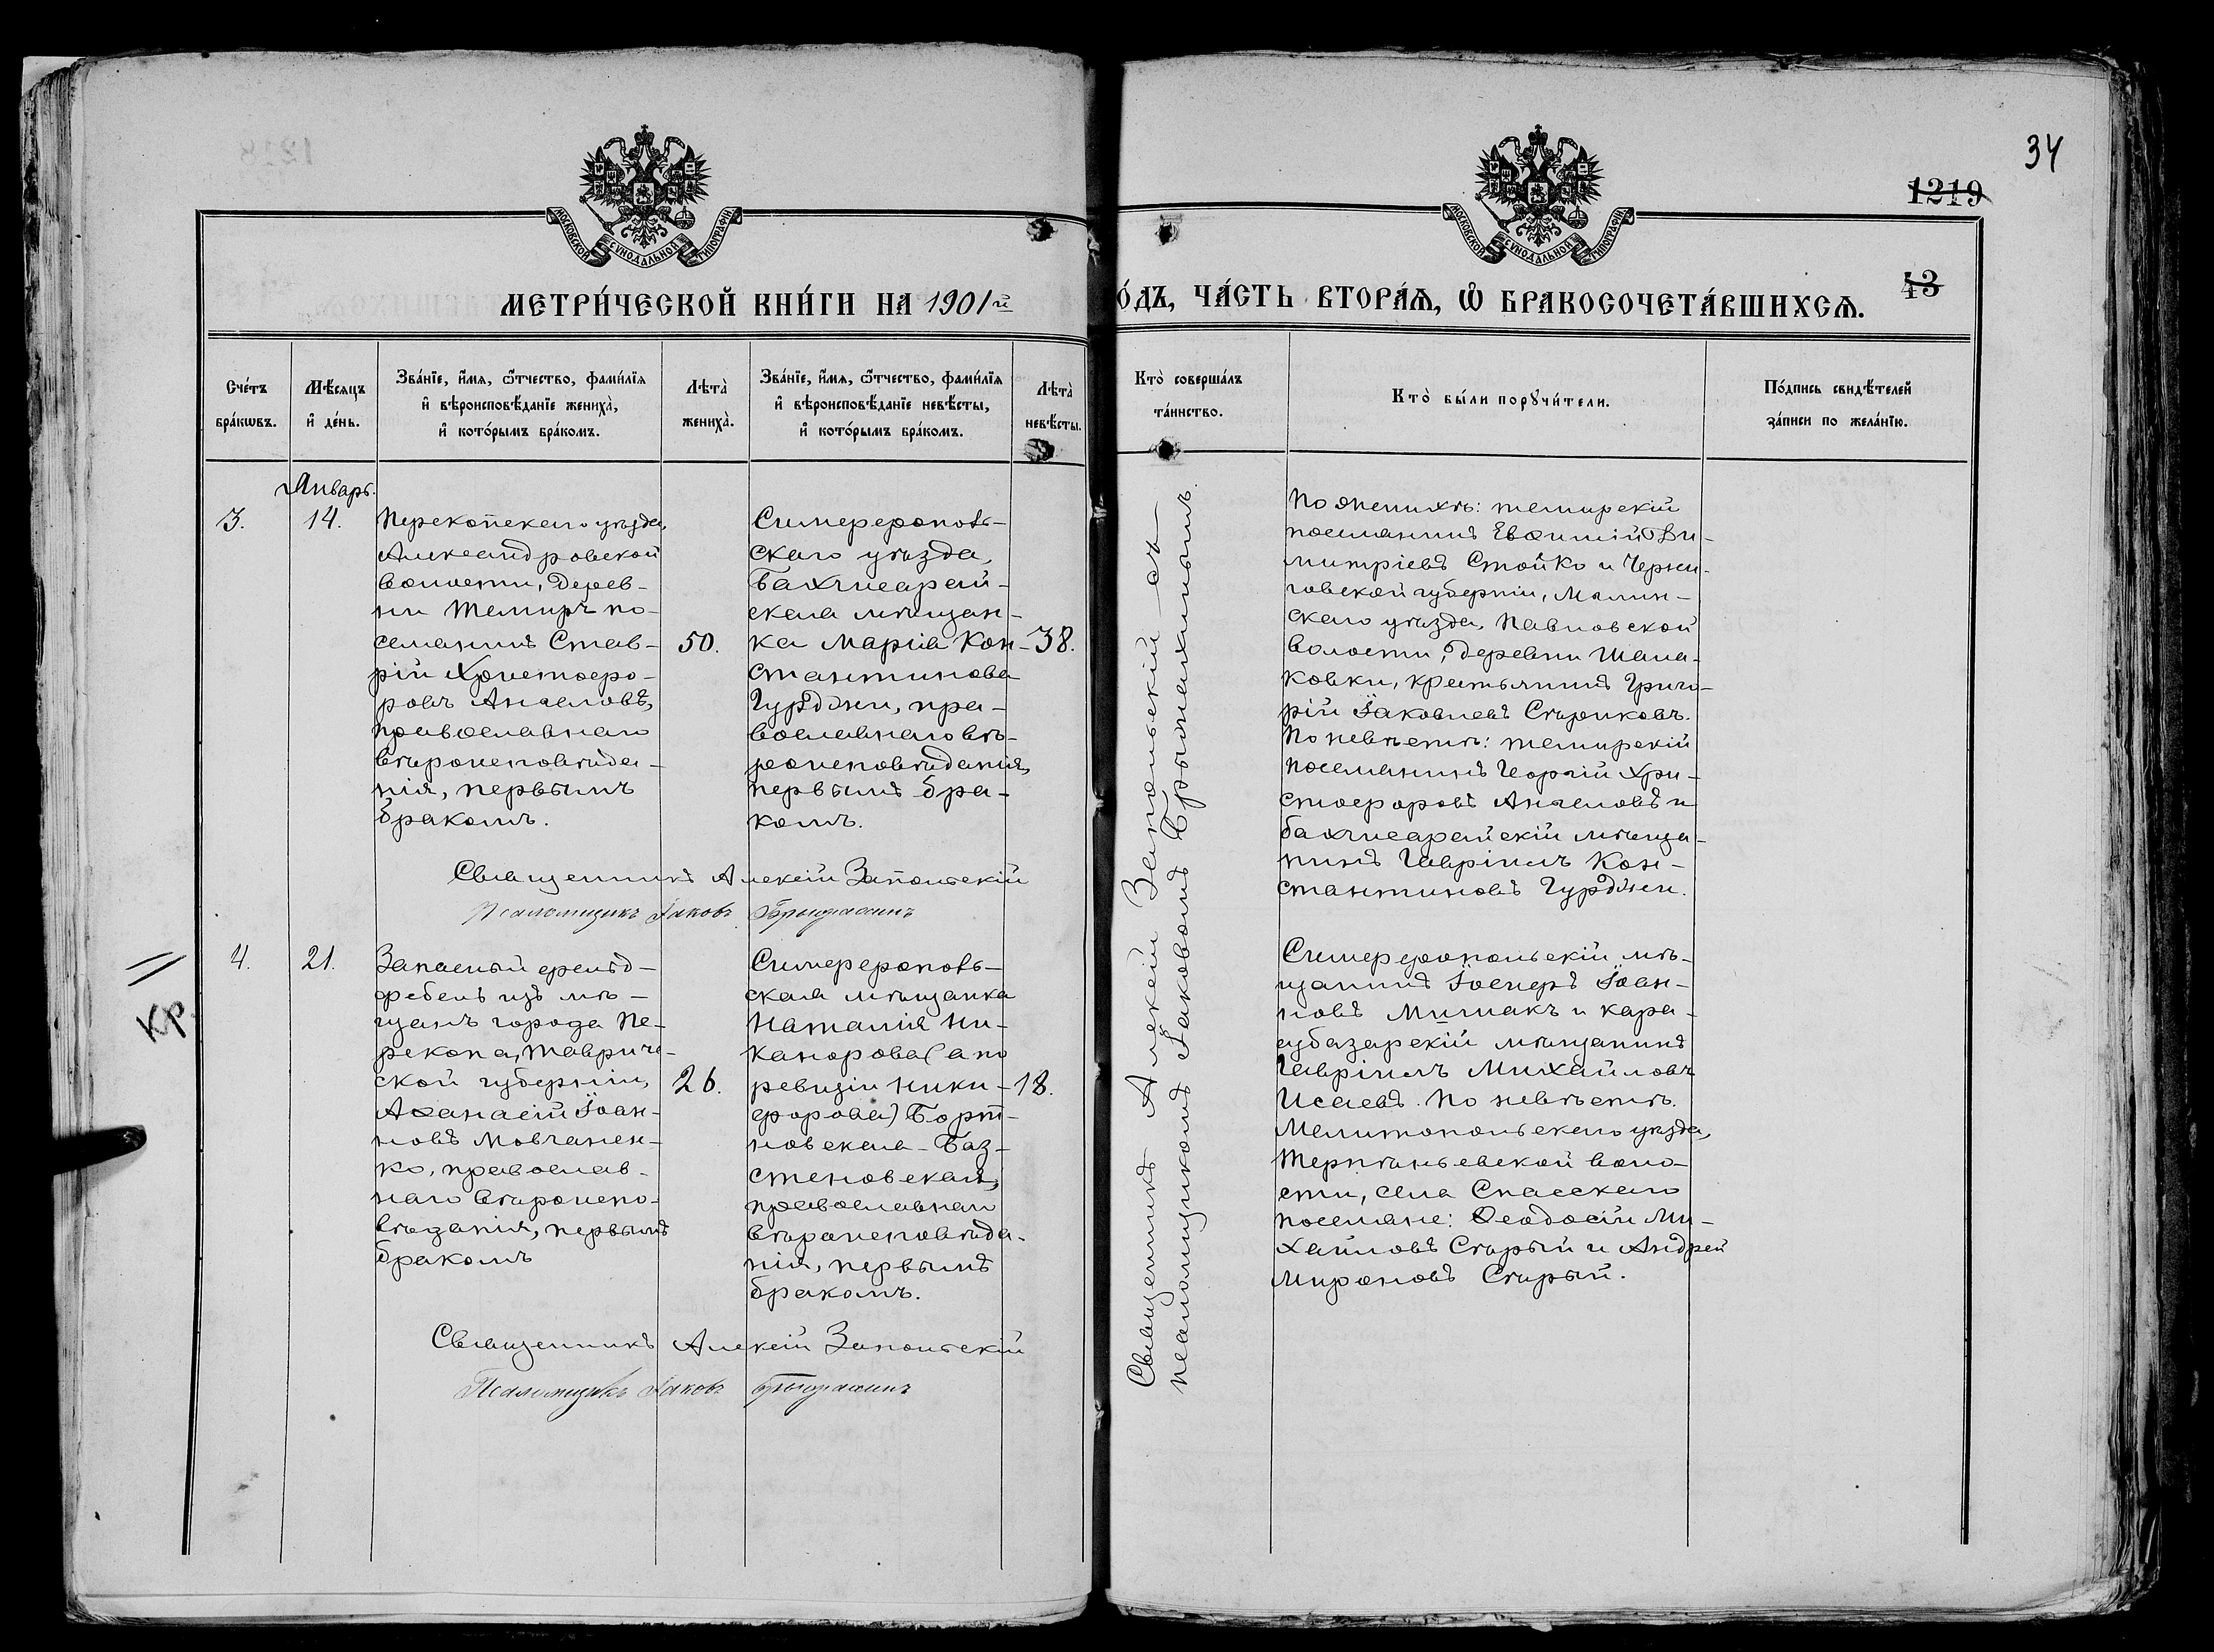 34
1219
43
МОСКОВСКОЙ СѴНОДАЛЬНОЙ ТИПОГРАФІИ
МОСКОВСКОЙ СѴНОДАЛЬНОЙ ТИПОГРАФІИ
МЕТРИ́ЧЕСКОЙ КНИ́ГИ НА 1901й
О́ДЪ, ЧА́СТЬ ВТОРА́Ѧ, Ѽ БРАКОСОЧЕТА́ВШИХСѦ.
Сче́тъ
бра́кѡвъ.
Мѣ́сяцъ
и҆ де́нь.
Зва́нїе, и҆́мѧ, ѻ҆́тчество, фами́лїѧ
и҆ вѣроисповѣ́данїе жениха̀,
и҆ кото́рымъ бра́комъ.
Лѣта̀
жениха̀.
Зва́нїе, и҆́мѧ, ѻ҆́тчество, фами́лїѧ
и҆ вѣроисповѣ́данїе невѣ́сты,
и҆ кото́рымъ бра́комъ.
Лѣта̀
невѣ́сты.
Кто̀ соверша́лъ
та́инство.
Кто̀ бы́ли порꙋчи́тели.
По́дпись свидѣ́телей
за́писи по жела́нїю.
Январь.
3.
14.
Перекопскаго уѣзда,
Александровской
волости, дерев-
ни Темиръ по-
селянинъ Став-
рій Христофо-
ровъ Ангеловъ,
православнаго
вѣроисповѣда-
нія, первымъ
бракомъ.
50.
Симферополь-
скаго уѣзда,
Бахчисарай-
ская мѣщан-
ка Марія Кон-
стантинова
Гурджи, пра-
вославнаго вѣ-
роисповѣданія,
первымъ бра-
комъ.
38.
Священникъ Алексій Запольскій
Псаломщикъ Іаковъ
Священникъ Алексій Запольскій съ
псаломщикомъ Іаковомъ
По женихѣ: темирскій
поселянинъ Евѳимій Ди-
митріевъ Стойко и Черни-
говской губерніи, Мглин-
скаго уѣзда, Павловской
волости, деревни Шала-
ковки, крестьянинъ Григо-
рій Іаковлевъ Стариковъ.
По невѣстѣ: темирскій
поселянинъ Георгій Хри-
стофоровъ Ангеловъ и
бахчисарайскій мѣща-
нинъ Гавріилъ Кон-
стантиновъ Гурджи.
4.
21.
Запасный фельд-
фебель изъ мѣ-
щанъ города Пе-
рекопа, Тавриче-
ской губерніи,
Аѳанасій Іоан-
новъ Мовчанен-
ко, православ-
наго вѣроиспо-
вѣданія, первымъ
бракомъ
26.
Симферополь-
ская мѣщанка
Наталія Ни-
канорова (а по
ревизіи Ники-
форова) Борт-
новская-Баз-
стеновская,
православнаго
вѣроисповѣда-
нія, первымъ
бракомъ.
18.
Священникъ Алексій Запольскій
Псаломщикъ Іаковъ
Симферопольскій мѣ-
щанинъ Іосифъ Іоан-
новъ Мишакъ и кара-
субазарскій мѣщанинъ
Гавріилъ Михайловъ
Исаевъ. По невѣстѣ.
Мелитопольскаго уѣзда,
Терпѣньевской воло-
сти, села Спасскаго
поселяне: Ѳеодосій Ми-
хайловъ Сѣрый и Андрей
Мироновъ Сѣрый.
Кр.